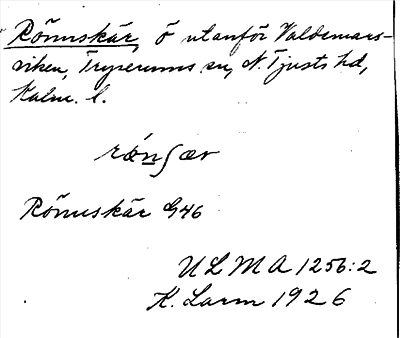 Rönnskär, ö utanför Valdemars-
viken, Tryserums sn, N. Tjusts hd,
Kalm. l.
Rönnskär G46
ULMA 1256:2
K. Larm 1926